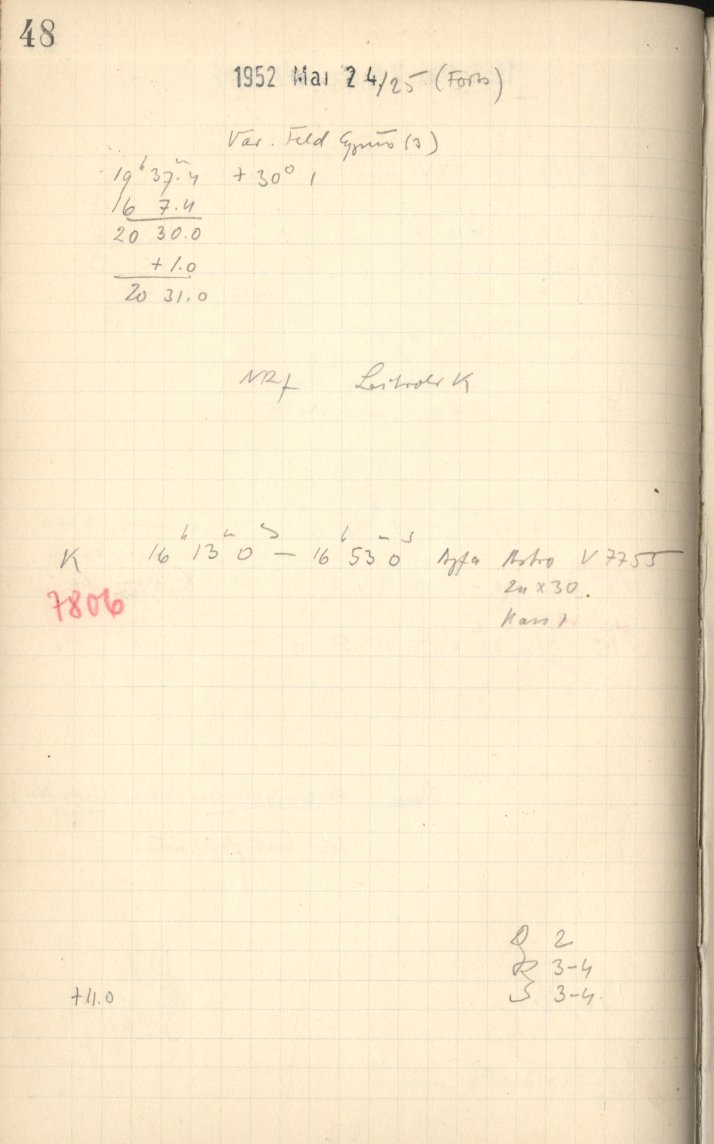 48
1952 Mai 24/25 (Forts)
Var. Feld Cygnus (3)
19h 37m.4 +30° 1
16 7.4
20 30.0
+1.0
20 31.0
Leitrohr K
K 16h 13m 0s — 16h 53m 0s Agfa Astro V 7755
24 x 30.
Kass 1
7806
Q 2
R 3-4
S 3-4.
+11.0